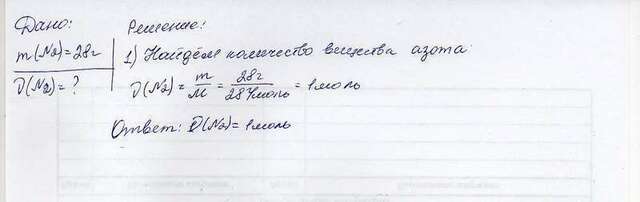 Дано:
m(N2)=28г
υ(N2)=?
Решение:
1) Найдём количество вещества азота:
υ(N2)= m/M = 28г/28г/моль = 1моль
Ответ: υ(N2)=1моль